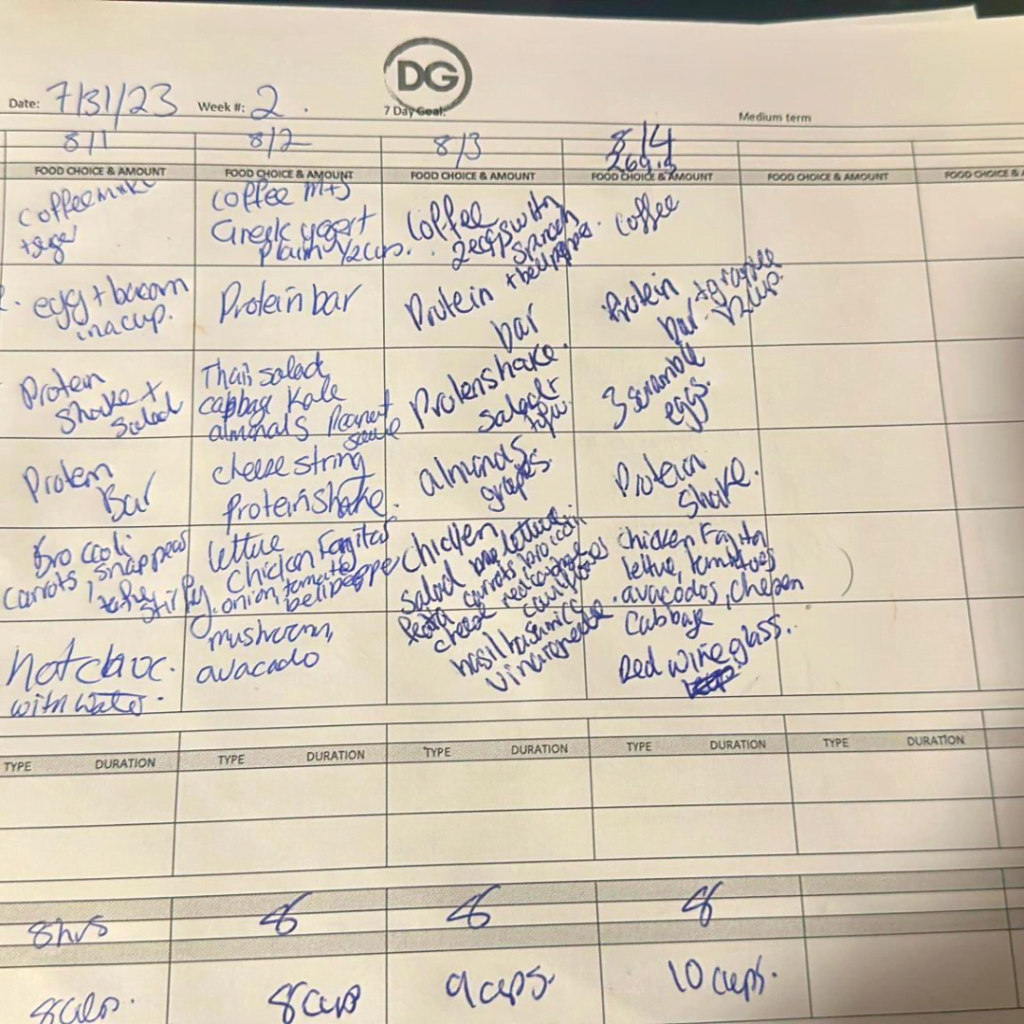 DG
Date: 7/31/23 Week #: 2. 7 Day Goal: Medium term
8/1 8/2 8/3 8/4
269.3
FOOD CHOICE & AMOUNT FOOD CHOICE & AMOUNT FOOD CHOICE & AMOUNT FOOD CHOICE & AMOUNT FOOD CHOICE & AMOUNT FOOD CHOICE &
coffee milk
coffee m+s
Greek yogert
plain 1/2 cup.
Coffee
2 eggs with
spinach
+ bell peppers.
coffee
egg + bacon
in a cup.
Protein bar
Protein
bar
Protein
bar + grapes
1/2 cup
Protein
Shake +
Salad
Thai salad
cabbag Kale
almonds Peanut
sauce
Protein shake.
Salad
3 scramble
eggs.
Protein
Bar
cheese string
Protein shake.
almonds
grapes.
Protein
Shake.
Broccoli
carrots, snap peas
stir fry.
lettuce
Chicken Fagitas
onion, tomato
bell pepper
mushroom,
avacado
Chicken
Salad lettuce
carrots broccoli
cheese
basil balsamic
vinaigrette
Chicken Fajita
lettuce, tomatoes
avacodos,
Cabbage
hot choc.
with water.
Red wine glass.
TYPE DURATION TYPE DURATION TYPE DURATION TYPE DURATION TYPE DURATION
8hrs 8 8 8
8 cup 9 cups. 10 cups.